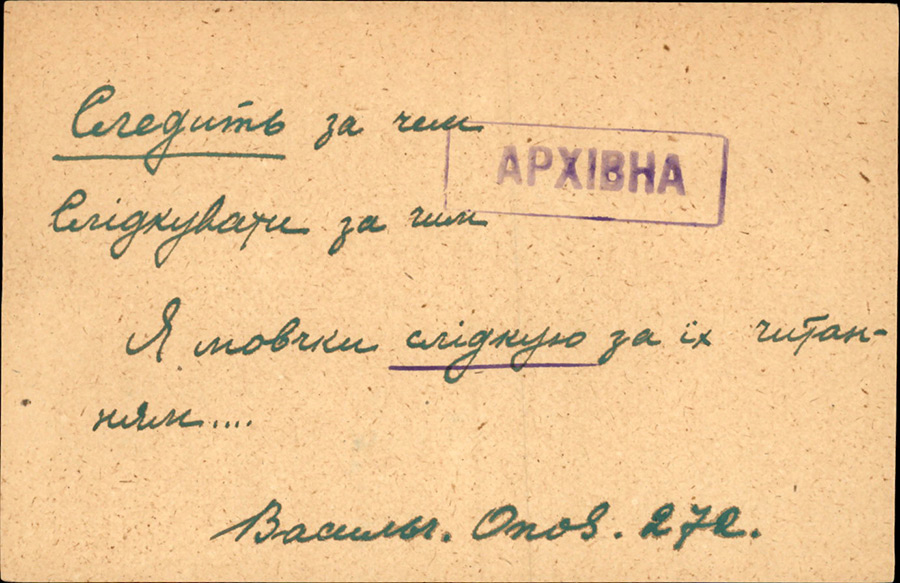 Следить за чем
АРХІВНА
Слідкувати за чим
Я мовчки слідкую за їх читан-
ням....
Васильч. Опов. 272.